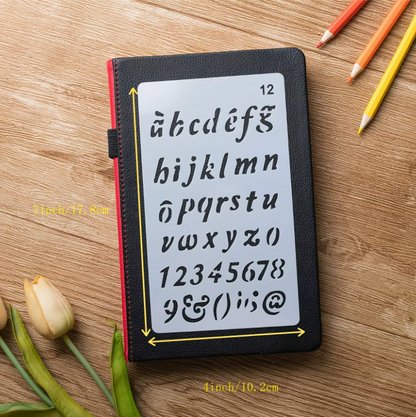 12
àbcdéfğ
hijklmn
õpqrstu
vwxyz()
12345678
9&()¡!;@
7inch/17.8cm
4inch/10.2cm